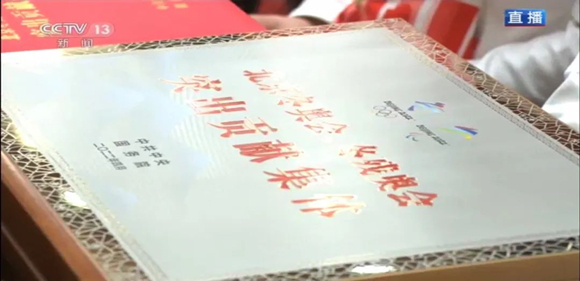 CCTV 13
新闻
直播
北京冬奥会、冬残奥会
突出贡献集体
中共中央
国务院